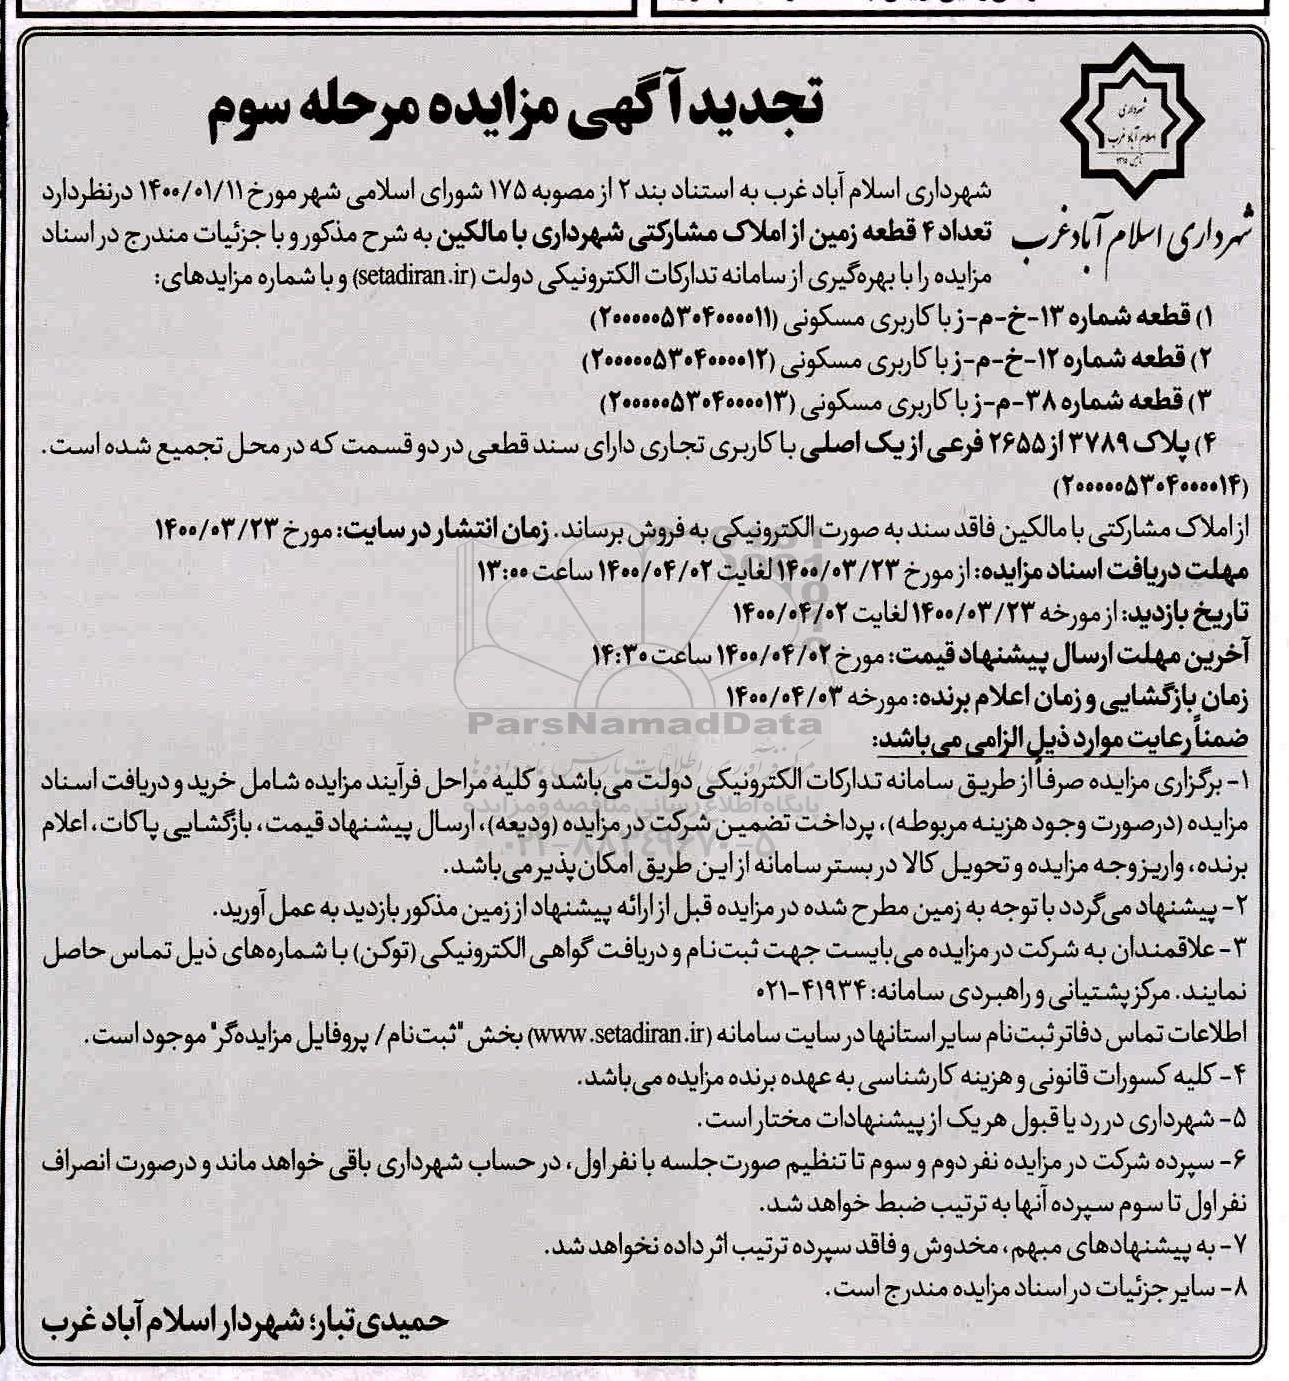 تجدید آگهی مزایده مرحله سوم
شهرداری
اسلام آباد غرب
شهرداری اسلام آباد غرب
شهرداری اسلام آباد غرب به استناد بند ۲ از مصوبه ۱۷۵ شورای اسلامی شهر مورخ ۱۴۰۰/۰۱/۱۱ درنظر دارد
تعداد ۴ قطعه زمین از املاک مشارکتی شهرداری با مالکین به شرح مذکور و با جزئیات مندرج در اسناد
مزایده را با بهره‌گیری از سامانه تدارکات الکترونیکی دولت (setadiran.ir) و با شماره مزایدهای:
۱) قطعه شماره ۱۳-خ-م-ز با کاربری مسکونی (۲۰۰۰۰۰۵۳۰۴۰۰۰۰۱۱)
۲) قطعه شماره ۱۲-خ-م-ز با کاربری مسکونی (۲۰۰۰۰۰۵۳۰۴۰۰۰۰۱۲)
۳) قطعه شماره ۳۸-م-ز با کاربری مسکونی (۲۰۰۰۰۰۵۳۰۴۰۰۰۰۱۳)
۴) پلاک ۳۷۸۹ از ۲۶۵۵ فرعی از یک اصلی با کاربری تجاری دارای سند قطعی در دو قسمت که در محل تجمیع شده است.
(۲۰۰۰۰۰۵۳۰۴۰۰۰۰۱۴)
از املاک مشارکتی با مالکین فاقد سند به صورت الکترونیکی به فروش برساند. زمان انتشار در سایت: مورخ ۱۴۰۰/۰۳/۲۳
مهلت دریافت اسناد مزایده: از مورخ ۱۴۰۰/۰۳/۲۳ لغایت ۱۴۰۰/۰۴/۰۲ ساعت ۱۳:۰۰
تاریخ بازدید: از مورخه ۱۴۰۰/۰۳/۲۳ لغایت ۱۴۰۰/۰۴/۰۲
آخرین مهلت ارسال پیشنهاد قیمت: مورخ ۱۴۰۰/۰۴/۰۲ ساعت ۱۴:۳۰
زمان بازگشایی و زمان اعلام برنده: مورخه ۱۴۰۰/۰۴/۰۳
ParsNamadData
ضمناً رعایت موارد ذیل الزامی می‌باشد:
۱- برگزاری مزایده صرفاً از طریق سامانه تدارکات الکترونیکی دولت می‌باشد و کلیه مراحل فرآیند مزایده شامل خرید و دریافت اسناد
پایگاه اطلاع رسانی مناقصه و مزایده
مزایده (درصورت وجود هزینه مربوطه)، پرداخت تضمین شرکت در مزایده (ودیعه)، ارسال پیشنهاد قیمت، بازگشایی پاکات، اعلام
۰۲۱-۸۸۳۴۹۶۷۰-۵
برنده، واریز وجه مزایده و تحویل کالا در بستر سامانه از این طریق امکان‌پذیر می‌باشد.
۲- پیشنهاد می‌گردد با توجه به زمین مطرح شده در مزایده قبل از ارائه پیشنهاد از زمین مذکور بازدید به عمل آورید.
۳- علاقمندان به شرکت در مزایده می‌بایست جهت ثبت‌نام و دریافت گواهی الکترونیکی (توکن) با شماره‌های ذیل تماس حاصل
نمایند. مرکز پشتیانی و راهبردی سامانه: ۴۱۹۳۴-۰۲۱
اطلاعات تماس دفاتر ثبت‌نام سایر استانها در سایت سامانه (www.setadiran.ir) بخش "ثبت‌نام / پروفایل مزایده‌گر" موجود است.
۴- کلیه کسورات قانونی و هزینه کارشناسی به عهده برنده مزایده می‌باشد.
۵- شهرداری در رد یا قبول هر یک از پیشنهادات مختار است.
۶- سپرده شرکت در مزایده نفر دوم و سوم تا تنظیم صورت‌جلسه با نفر اول، در حساب شهرداری باقی خواهد ماند و درصورت انصراف
نفر اول تا سوم سپرده آنها به ترتیب ضبط خواهد شد.
۷- به پیشنهادهای مبهم، مخدوش و فاقد سپرده ترتیب اثر داده نخواهد شد.
۸- سایر جزئیات در اسناد مزایده مندرج است.
حمیدی‌تبار؛ شهردار اسلام آباد غرب